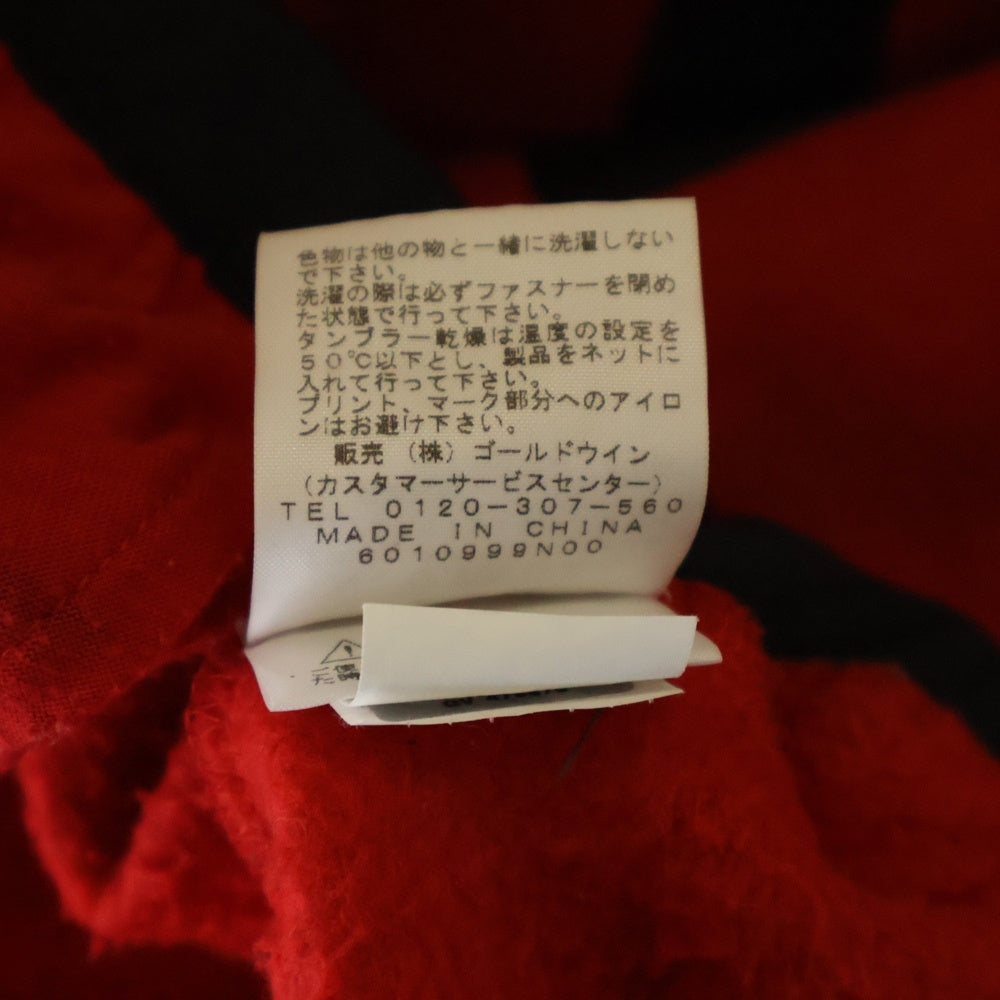 色物は他の物と一緒に洗濯しない
で下さい。
洗濯の際は必ずファスナーを閉め
た状態で行って下さい。
タンブラー乾燥は温度の設定を
50℃以下とし、製品をネットに
入れて行って下さい。
プリント、マーク部分へのアイロ
ンはお避け下さい。
販売 (株) ゴールドウイン
(カスタマーサービスセンター)
TEL 0120-307-560
MADE IN CHINA
6010999N00